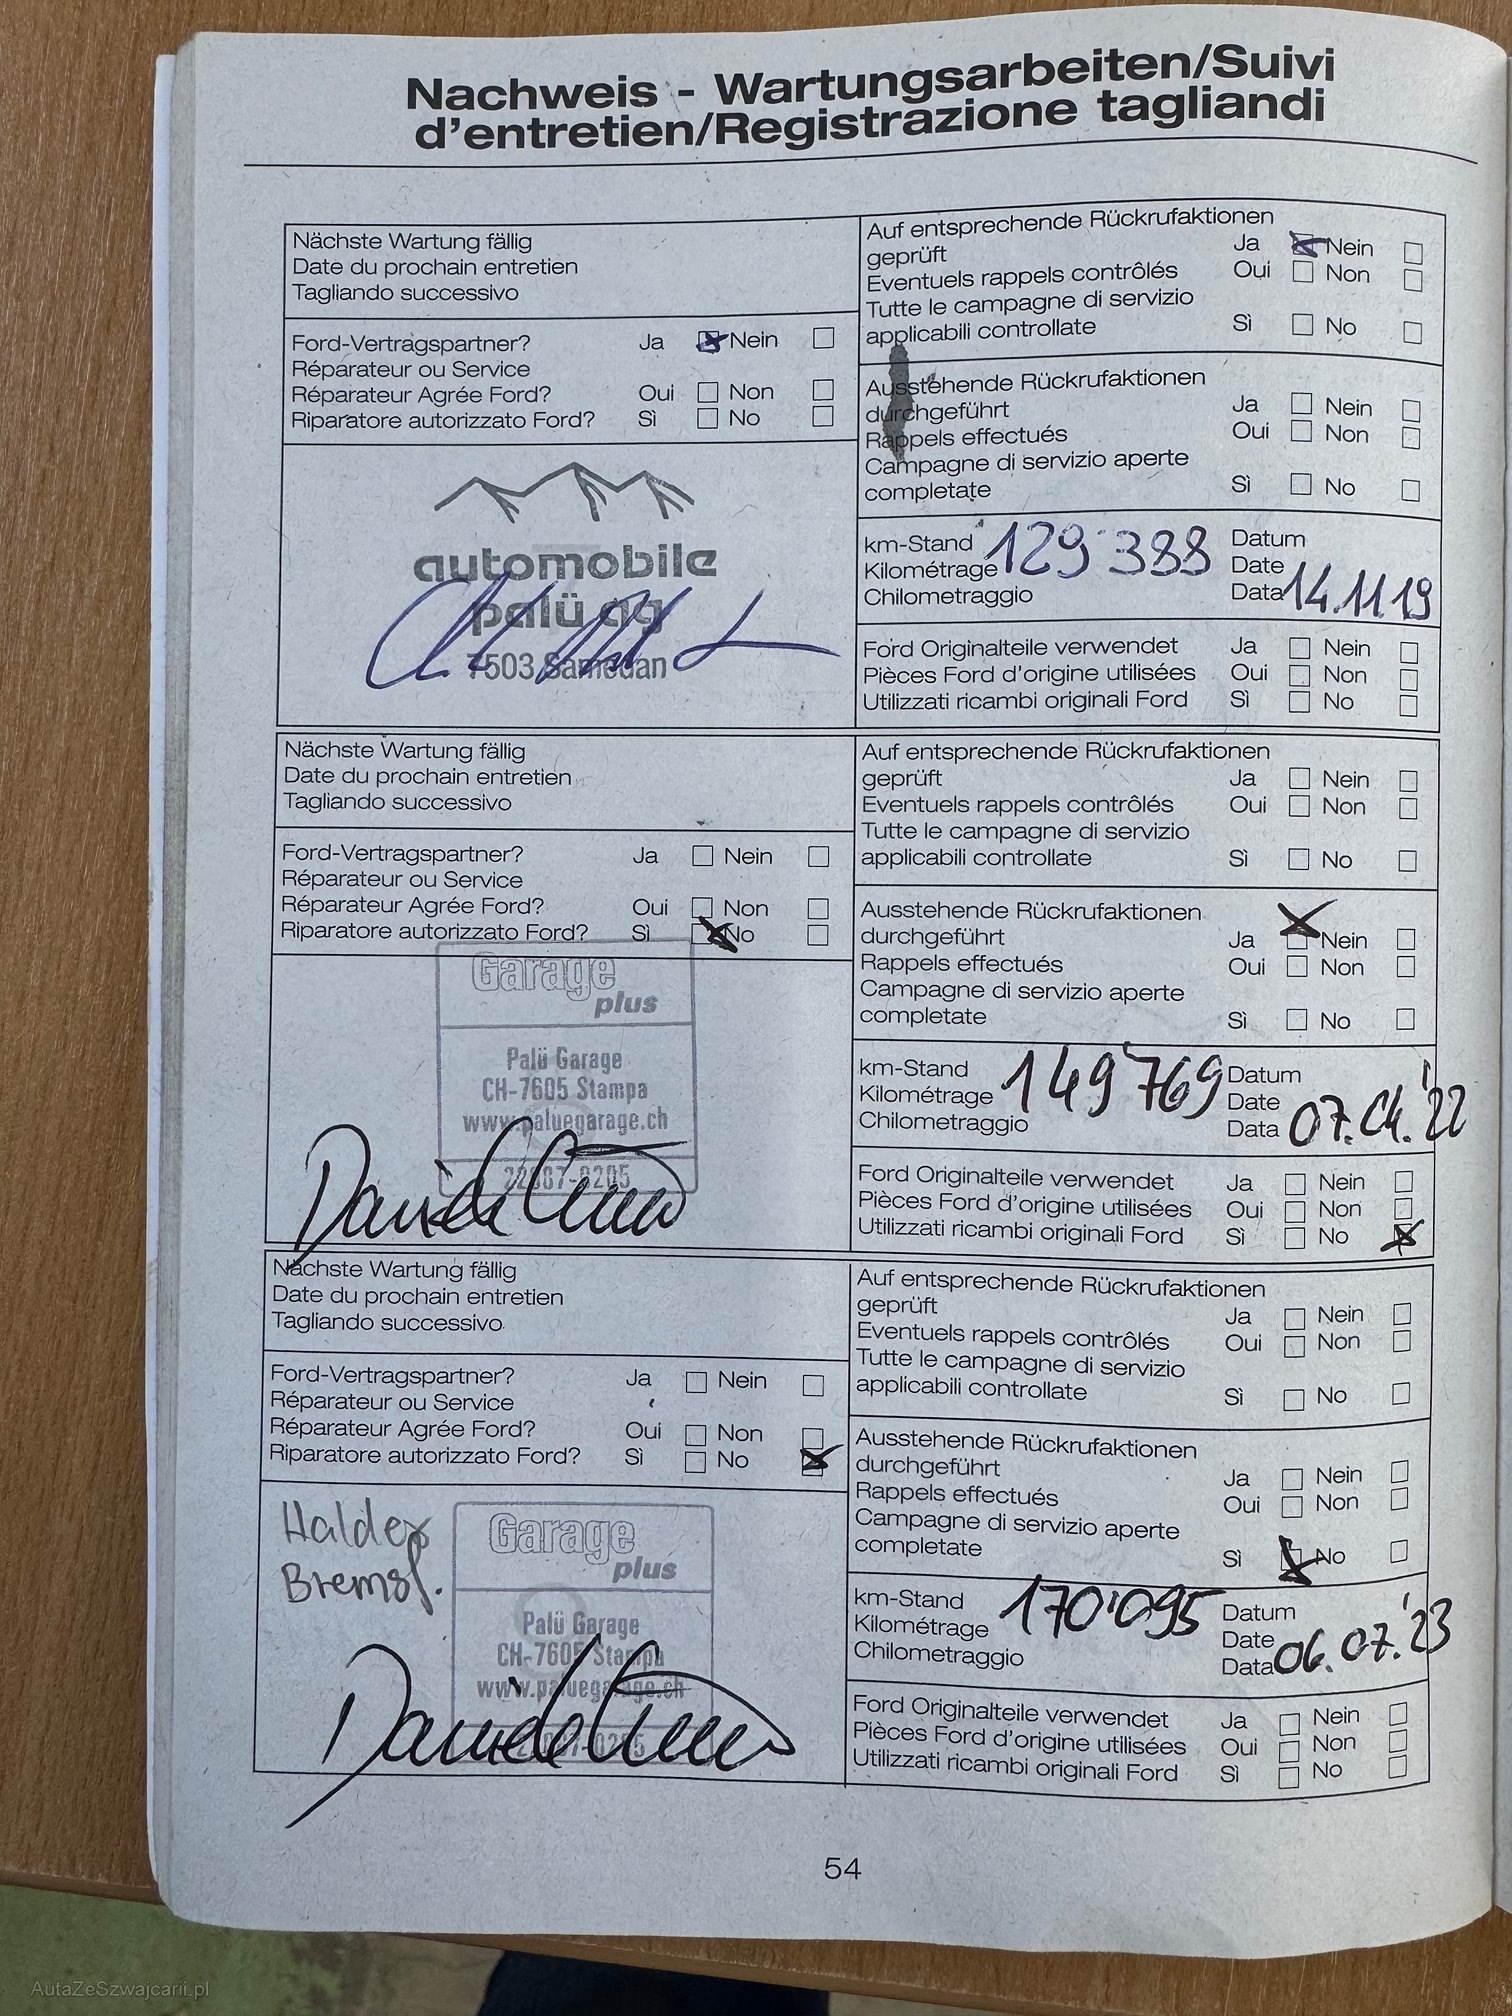 Nachweis - Wartungsarbeiten/Suivi
d'entretien/Registrazione tagliandi
Nächste Wartung fällig
Date du prochain entretien
Tagliando successivo
Ford-Vertragspartner? Ja Nein
Réparateur ou Service
Réparateur Agrée Ford? Oui Non
Riparatore autorizzato Ford? Sì No
automobile
palü ag
7503 Samedan
Auf entsprechende Rückrufaktionen
geprüft Ja Nein
Eventuels rappels contrôlés Oui Non
Tutte le campagne di servizio
applicabili controllate Sì No
Ausstehende Rückrufaktionen
durchgeführt Ja Nein
Rappels effectués Oui Non
Campagne di servizio aperte
completate Sì No
km-Stand 129'388 Datum
Kilométrage Date
Chilometraggio Data 14.11.19
Ford Originalteile verwendet Ja Nein
Pièces Ford d'origine utilisées Oui Non
Utilizzati ricambi originali Ford Sì No
Nächste Wartung fällig
Date du prochain entretien
Tagliando successivo
Ford-Vertragspartner? Ja Nein
Réparateur ou Service
Réparateur Agrée Ford? Oui Non
Riparatore autorizzato Ford? Sì No
Garage
plus
Palü Garage
CH-7605 Stampa
www.paluegarage.ch
Auf entsprechende Rückrufaktionen
geprüft Ja Nein
Eventuels rappels contrôlés Oui Non
Tutte le campagne di servizio
applicabili controllate Sì No
Ausstehende Rückrufaktionen
durchgeführt Ja Nein
Rappels effectués Oui Non
Campagne di servizio aperte
completate Sì No
km-Stand 149'769 Datum
Kilométrage Date
Chilometraggio Data 07.04.'22
Ford Originalteile verwendet Ja Nein
Pièces Ford d'origine utilisées Oui Non
Utilizzati ricambi originali Ford Sì No
Nächste Wartung fällig
Date du prochain entretien
Tagliando successivo
Ford-Vertragspartner? Ja Nein
Réparateur ou Service
Réparateur Agrée Ford? Oui Non
Riparatore autorizzato Ford? Sì No
Haldex
Bremsf.
Garage
plus
Palü Garage
CH-7605 Stampa
www.paluegarage.ch
Auf entsprechende Rückrufaktionen
geprüft Ja Nein
Eventuels rappels contrôlés Oui Non
Tutte le campagne di servizio
applicabili controllate Sì No
Ausstehende Rückrufaktionen
durchgeführt Ja Nein
Rappels effectués Oui Non
Campagne di servizio aperte
completate Sì No
km-Stand 170'095 Datum
Kilométrage Date
Chilometraggio Data 06.07.'23
Ford Originalteile verwendet Ja Nein
Pièces Ford d'origine utilisées Oui Non
Utilizzati ricambi originali Ford Sì No
54
AutaZeSzwajcarii.pl